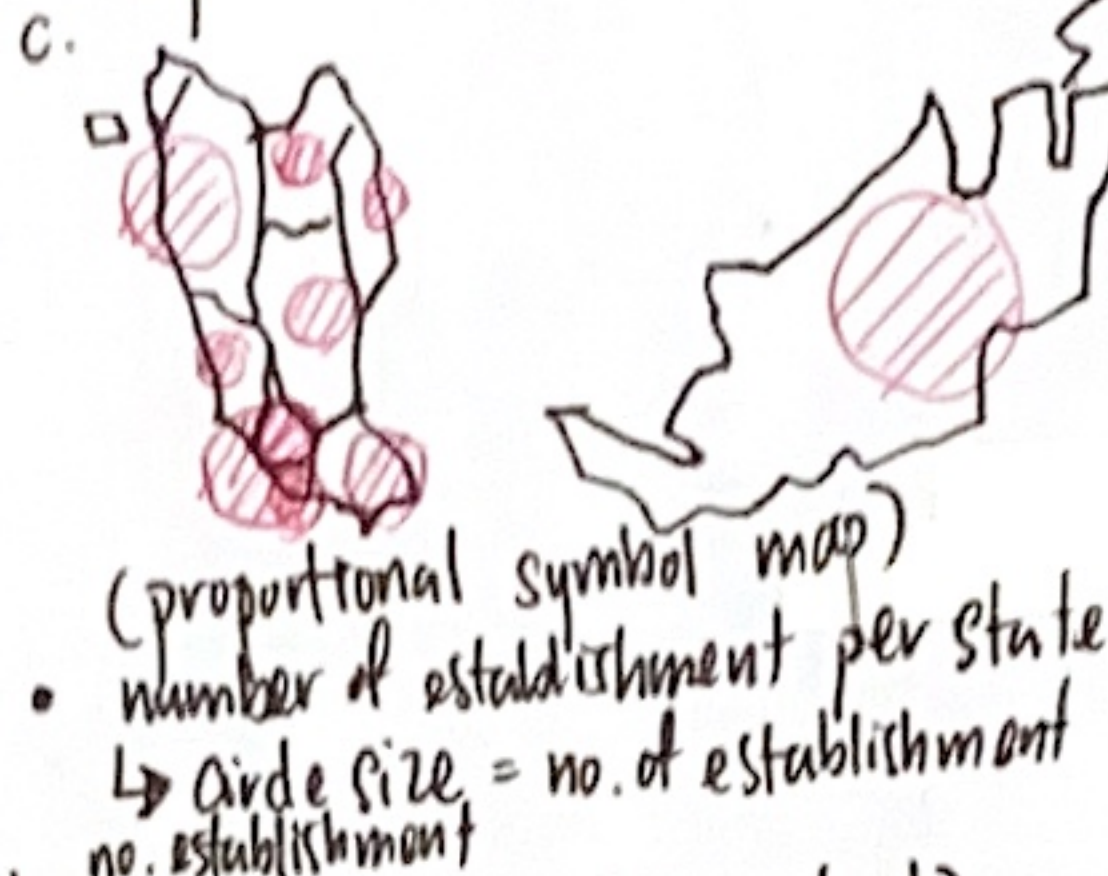 c.
(proportional symbol map)
• number of establishment per state
↳ circle size = no. of establishment
no. establishment